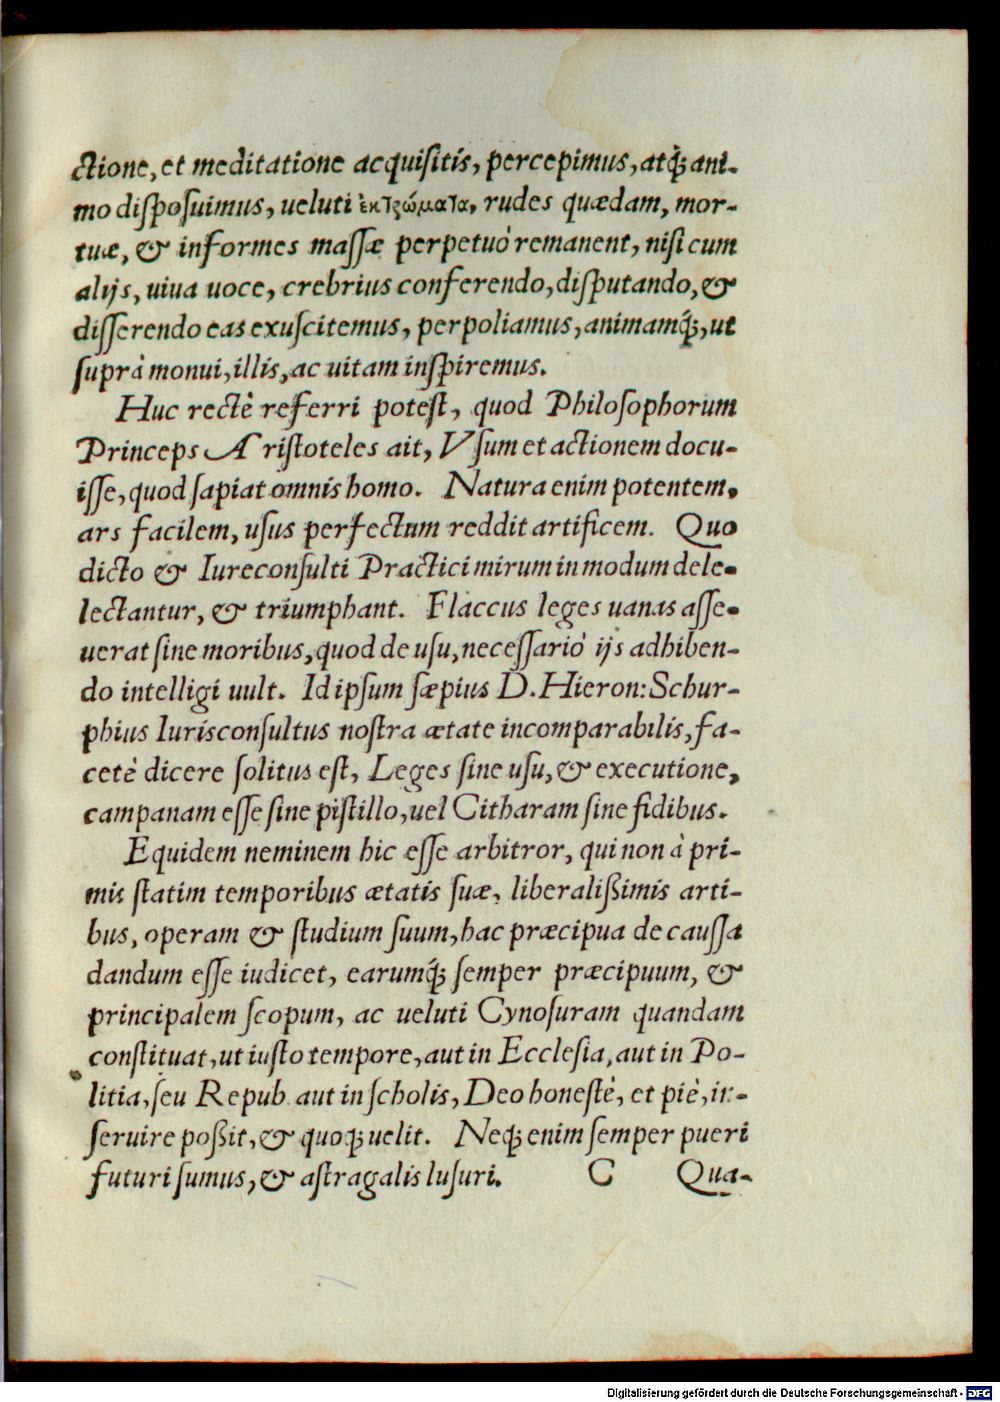 ctione, et meditatione acquisitis, percepimus, atq́; ani-
mo disposuimus, ueluti ἐκτρώματα, rudes quædam, mor-
tuæ, & informes massæ perpetuò remanent, nisi cum
alijs, uiua uoce, crebrius conferendo, disputando, &
disserendo eas exuscitemus, perpoliamus, animamq́;, ut
suprà monui, illis, ac uitam inspiremus.
Huc rectè referri potest, quod Philosophorum
Princeps Aristoteles ait, Vsum et actionem docu-
isse, quod sapiat omnis homo. Natura enim potentem,
ars facilem, usus perfectum reddit artificem. Quo
dicto & Iureconsulti Practici mirum in modum dele-
lectantur, & triumphant. Flaccus leges uanas asse-
uerat sine moribus, quod de usu, necessariò ijs adhiben-
do intelligi uult. Id ipsum sæpius D. Hieron: Schur-
phius Iurisconsultus nostra ætate incomparabilis, fa-
cetè dicere solitus est, Leges sine usu, & executione,
campanam esse sine pistillo, uel Citharam sine fidibus.
Equidem neminem hic esse arbitror, qui non à pri-
mis statim temporibus ætatis suæ, liberalißimis arti-
bus, operam & studium suum, hac præcipua de caussa
dandum esse iudicet, earumq́; semper præcipuum, &
principalem scopum, ac ueluti Cynosuram quandam
constituat, ut iusto tempore, aut in Ecclesia, aut in Po-
litia, seu Repub. aut in scholis, Deo honestè, et piè, in-
seruire poßit, & quoq; uelit. Neq; enim semper pueri
futuri sumus, & astragalis lusuri. C Qua-
Digitalisierung gefördert durch die Deutsche Forschungsgemeinschaft - DFG